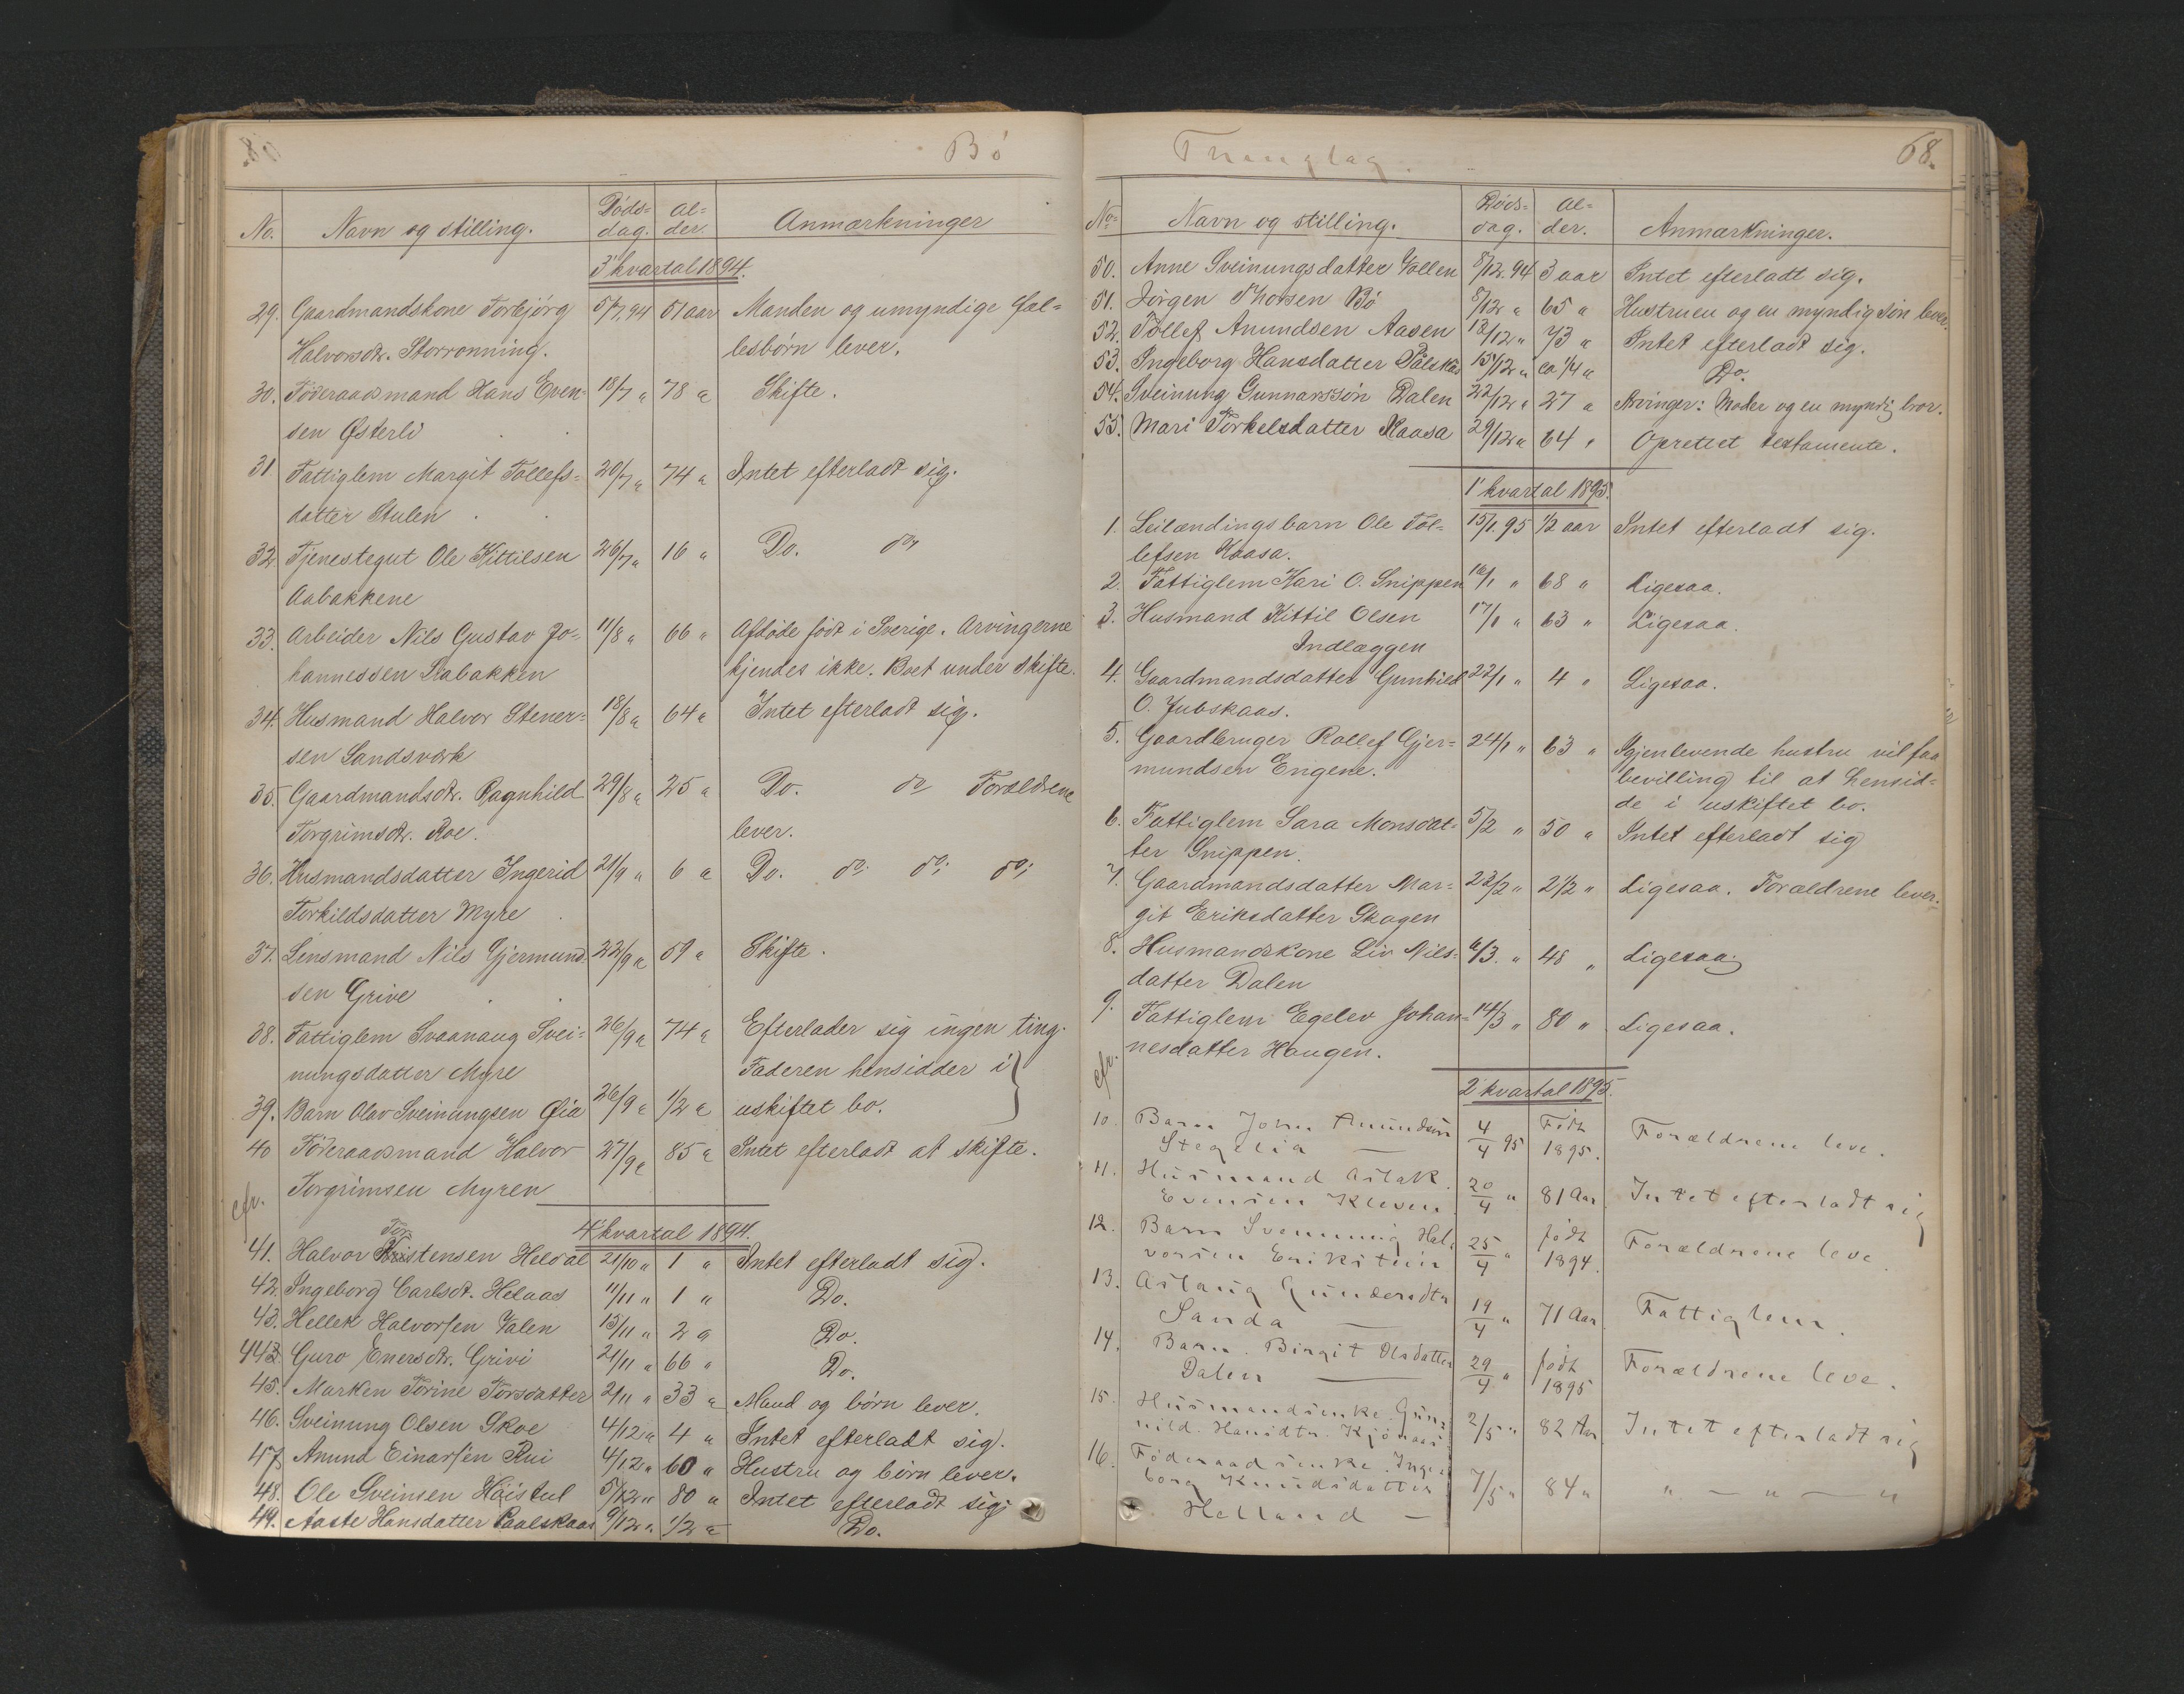 Bö
No. Navn og stilling. Döds= Al= Anmærkninger
dag. der.
3' kvartal 1894.
29. Gaardmandskone Torbjörg 5/7.94 51 aar Manden og umyndige fæl=
Halvorsdtr. Storrønning. lesbörn lever.
30. Föderaadsmand Hans Even= 18/7 " 78 " Skifte.
sen Østerli
31 Fattiglem Margit Tollefs= 20/7 " 74 " Intet efterladt sig.
datter Stulen
32 Tjenestegut Ole Kittilsen 26/7 " 16 " Do. do
Aabakkene
33. Arbeider Nils Gustav Jo= 11/8 " 66 " Afdöde födt i Sverige. Arvingerne
hannessen kjendes ikke. Boet under skifte.
34. Husmand Halvor Stener= 18/8 " 64 " Intet efterladt sig.
sen Sandsværk
35. Gaardmandsdtr. Ragnhild 29/8 " 25 " Do. do Forældrene
Torgrimsdtr. Roe. lever.
36. Husmandsdatter Ingerid 21/9 " 6 " Do. do: do: do:
Torkildsdatter Myre
37. Lensmand Nils Gjermund= 22/9 " 59 " Skifte.
sen Grive
38. Fattiglem Svaanaug Svei= 26/9 " 74 " Efterlader sig ingen ting.
nungsdatter Myre Faderen hensidder i
39. Barn Olav Sveinungsen Øia 26/9 " 1/2 " uskiftet bo.
40 Föderaadsmand Halvor 27/9 " 85 " Intet efterladt at skifte.
Torgrimsen Myren
cfr.
4' kvartal 1894.
41. Halvor Kristensen Heldal 21/10 " 1 " Intet efterladt sig.
42. Ingeborg Carlsdt. Helaas 11/11 " 1 " Do.
43. Hellek Halvorsen Valen 13/11 " 2 " Do.
44. Guro Enersdtr. Grivi 21/11 " 66 " Do.
45. Marken Torine Torsdatter 2/11 " 33 " Mand og börn lever.
46. Sveinung Olsen Skoe 4/12 " 4 " Intet efterladt sig.
47. Anund Einarsen Rui 4/12 " 60 " Hustru og börn lever.
48. Ole Sveinsen Höistul 5/12 " 80 " Intet efterladt sig
49. Aaste Hansdatter Paalskaas 9/12 " 1/2 " Do.
Thinglag. 68.
No= Navn og stilling. Döds= Al= Anmærkninger.
dag. der.
50. Anne Sveinungsdatter Vollen 8/12.94 3 aar Intet efterladt sig.
51. Jörgen Thorsen Bö 8/12 " 65 " Hustruen og en myndig sön lever.
52. Tollef Amundsen Aasen 12/12 " 73 " Intet efterladt sig.
53. Ingeborg Hansdatter Pålskås 15/12 " ca 1/4 " Do.
54. Sveinung Gunnarssön Dalen 22/12 " 27 " Arvinger: Moder og en myndig bror.
55. Mari Torkelsdatter Kaasa 29/12 " 64 " Oprettet testamente.
1' kvartal 1895.
1. Leilændingsbarn Ole Tol= 15/1.95 1/2 aar Intet efterladt sig.
lefsen Kaasa.
2. Fattiglem Kari O. Snippen 16/1 " 68 " Ligesaa.
3. Husmand Kittil Olsen 17/1 " 63 " Ligesaa.
Indlæggen
4. Gaardmandsdatter Gunhild 22/1 " 4 " Ligesaa.
O. Jubskaas.
5. Gaardbruger Rollef Gjer= 24/1 " 63 " Igjenlevende hustru vil faa
mundsen Engene. bevilling til at hensid=
de i uskiftet bo.
6. Fattiglem Sara Monsdat= 5/2 " 50 " Intet efterladt sig
ter Snippen.
7. Gaardmandsdatter Mar= 23/2 " 2 1/2 " Ligesaa. Forældrene lever.
git Eriksdatter Skogen
8. Husmandskone Liv Niels= 6/3. " 48 " Ligesaa
datter Dalen
9. Fattiglem Egelev Johan= 14/3 " 80 " Ligesaa.
nesdatter Haugen.
cfr.
2' kvartal 1895.
10. Barn John Amundsen 4/4 95 Födt 1895. Forældrene leve.
Stegelia
11. Husmand Aslak 20/4 " 81 Aar Intet efterladt sig
Evensen Kleven
12. Barn Svennung Hal= 25/4 " født 1894. Forældrene leve
vorsen Erikstein
13. Aslaug Gundersdtr 19/4 " 71 Aar Fattiglem.
Sanda
14. Barn. Birgit Olsdatter 29/4 " født 1895 Forældrene leve.
Dalen
15. Husmandsenke. Gun= 2/5 " 82 Aar Intet efterladt sig
nild. Hansdtr. Kjönaas
16. Föderaadsenke. Inge= 7/5 " 84 " " — " — "
borg Knudsdatter
Helland